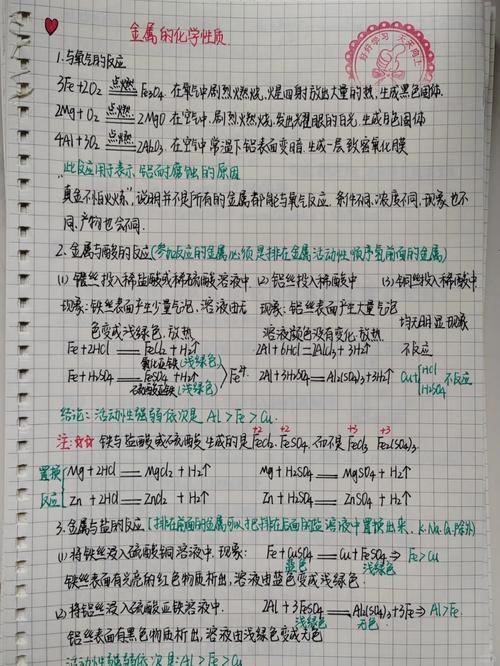 金属的化学性质
好好学习 天天向上
1.与氧气的反应
3Fe+2O₂ 点燃 Fe₃O₄ 在氧气中剧烈燃烧,火星四射放出大量的热,生成黑色固体
2Mg+O₂ 点燃 2MgO 在空气中,剧烈燃烧,发出耀眼的白光,生成白色固体
4Al+3O₂ 点燃 2Al₂O₃ 在空气中常温下铝表面变暗,生成一层致密氧化膜
此反应用于表示铝耐腐蚀的原因
真金不怕火炼",说明并不是所有的金属都能与氧气反应.条件不同、浓度不同,现象也不
同,产物也会不同.
2.金属与酸的反应(参加反应的金属必须是排在金属活动性顺序氢前面的金属)
(1) 投入稀盐酸或稀硫酸溶液中 (2) 铝丝投入稀酸中 (3) 铜丝投入稀酸中
现象:铁丝表面产生少量气泡,溶液由无 现象:铝丝表面产生大量气泡 均无明显现象
色变成浅绿色,放热 溶液颜色没有变化,放热
Fe+2HCl = FeCl₂+H₂↑ 2Al+6HCl=2AlCl₃+3H₂↑ 不反应
氯化亚铁(浅绿色)
Fe+H₂SO₄ = FeSO₄+H₂↑ Fe²⁺ 2Al+3H₂SO₄=Al₂(SO₄)₃+3H₂↑ Cu+{HCl H₂SO₄ 不反应
硫酸亚铁(浅绿色)
结论:活动性强弱依次是 Al>Fe>Cu.
注:☆☆ 铁与盐酸或硫酸生成的是FeCl₂、FeSO₄,而不是FeCl₃ Fe₂(SO₄)₃
+2 +2 +3 +3
置换反应 Mg+2HCl = MgCl₂+H₂↑ Mg+H₂SO₄ = MgSO₄+H₂↑
Zn+2HCl = ZnCl₂+H₂↑ Zn+H₂SO₄ = ZnSO₄+H₂↑
3.金属与盐的反应(排在前面的金属可以把排在后面的盐溶液中置换出来,K、Na、Ca除外)
(1) 将铁丝浸入硫酸铜溶液中.现象: Fe+CuSO₄=Cu+FeSO₄⇒Fe>Cu
蓝色 浅绿色
铁丝表面有光亮的红色物质析出,溶液由蓝色变成浅绿色.
(2) 将铝丝浸入硫酸亚铁溶液中. 2Al+3FeSO₄=Al₂(SO₄)₃+3Fe⇒Al>Fe
浅绿色 无色
铝丝表面有黑色物质析出,溶液由浅绿色变成无色
活动性强弱依次是:Al>Fe